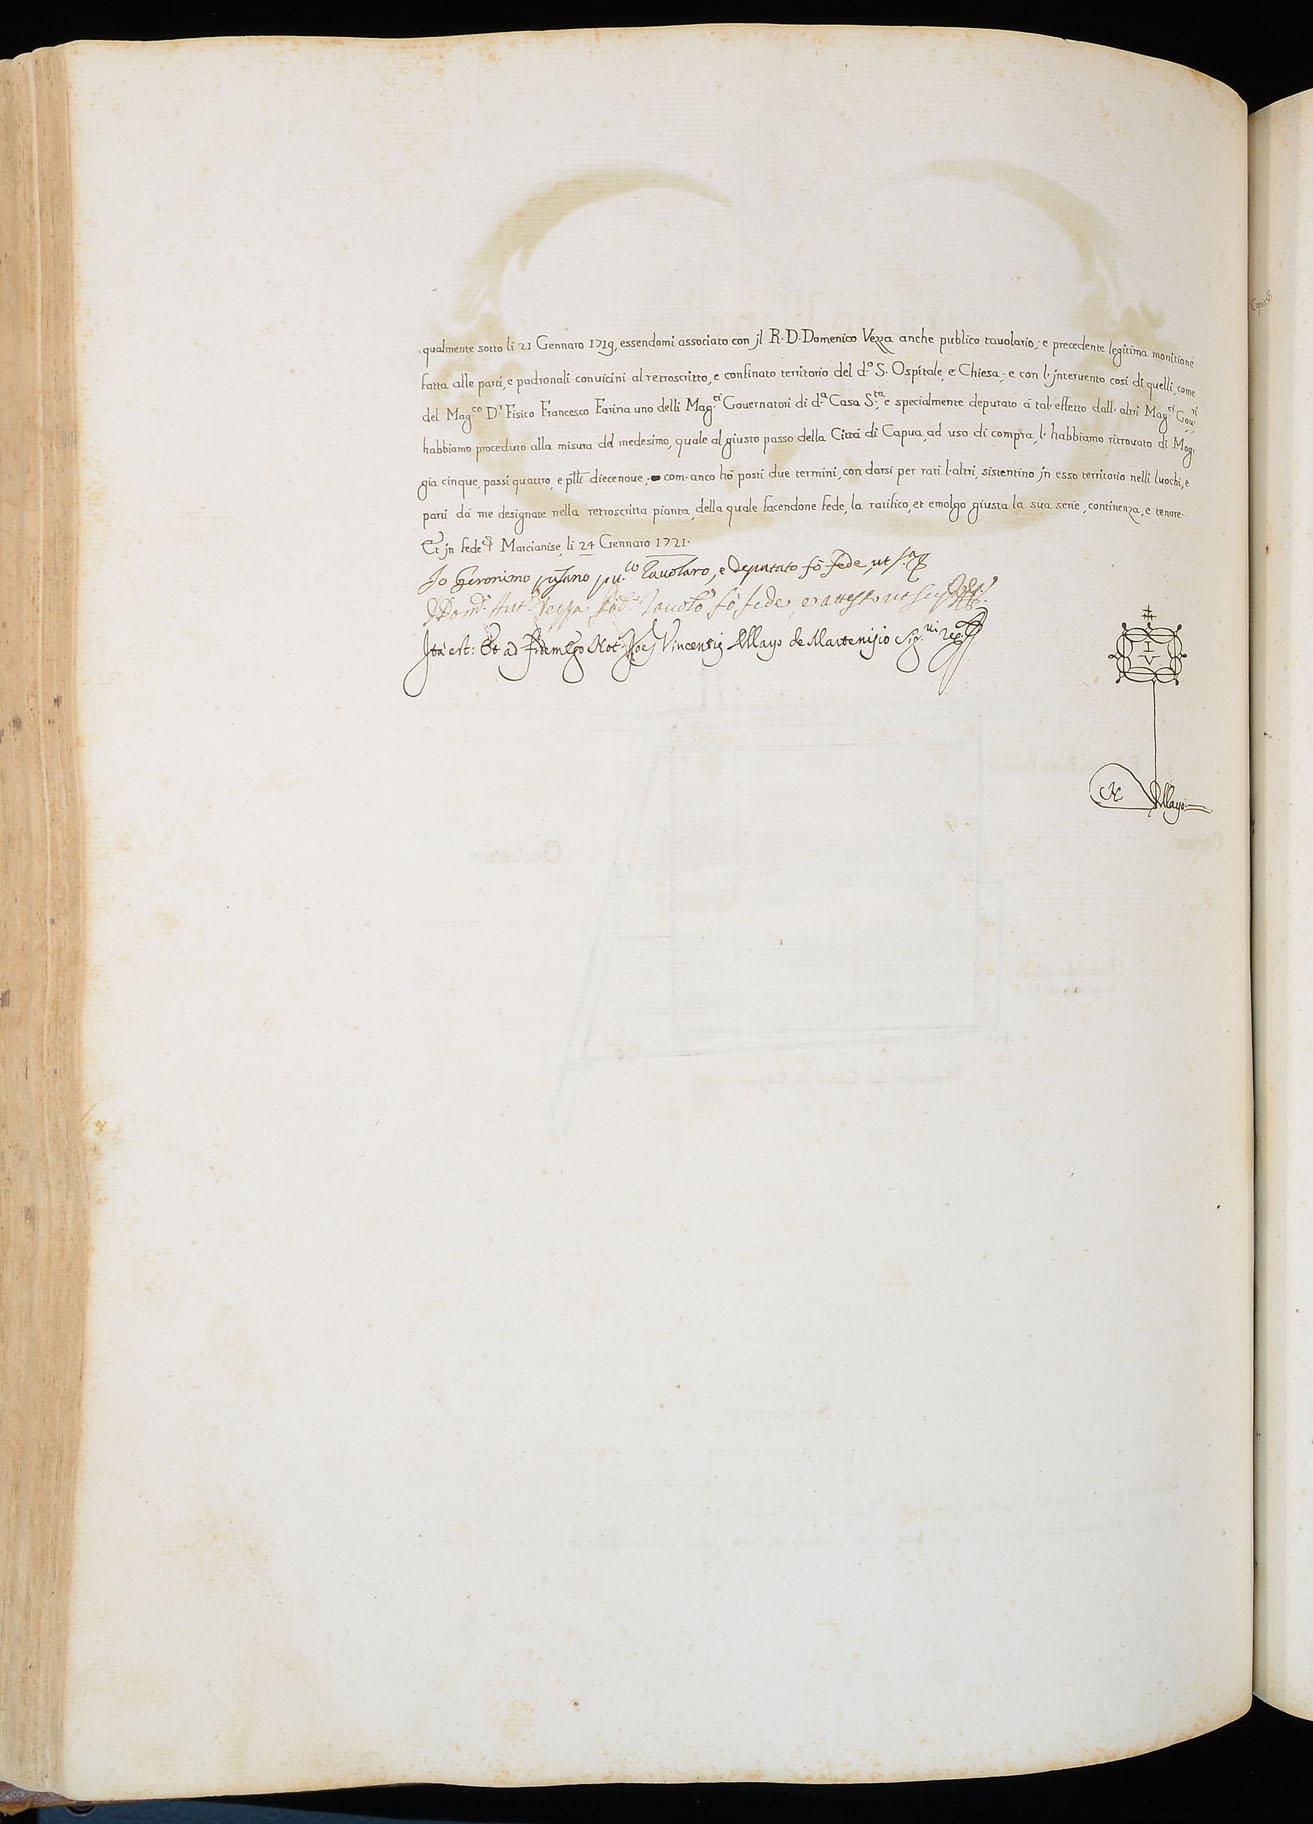 qualmente sotto li 21 Gennaro 1719, essendomi associato con jl R. D. Domenico Vezza anche publico tavolario, e precedente legitima monitione
fatta alle parti, e padronali convicini al retroscritto, e confinato territorio del d.º S. Ospitale, e Chiesa, e con l'jntervento cosi di quelli, come
del Mag.co D.r Fisico Francesco Farina uno delli Mag.ci Governatori di d.a Casa S.ta, e specialmente deputato à tal' effetto dall' altri Mag.ci Gov.ri
habbiamo proceduto alla misura del medesimo, quale al giusto passo della Città di Capua, ad uso di compra, l' habbiamo ritrovato di Mog:
gia cinque, passi quattro, e p.tti diecenove; com' anco hò posti due termini, con darsi per rati l'altri, sistentino jn esso territorio nelli luochi, e
parti dà me designate nella retroscritta pianta, della quale facendone fede, la ratifico, et emolgo giusta la sua serie, continenza, e tenore.
Et jn fede Marcianise, li 24 Gennaro 1721.
Io Geronimo pu.co Tavolaro, e deputato fò fede, ut s.a
D. Dom.co Ant.o Vezza Tavol.o fò fede, e attesto ut sup.a
Ita est: Et ad fidem Ego Not. Joes Vincentis Allayo de Martenisio Sig.vi req.
I
V
N Allayo
Copia di
Occidente
Oriente
Settentrione